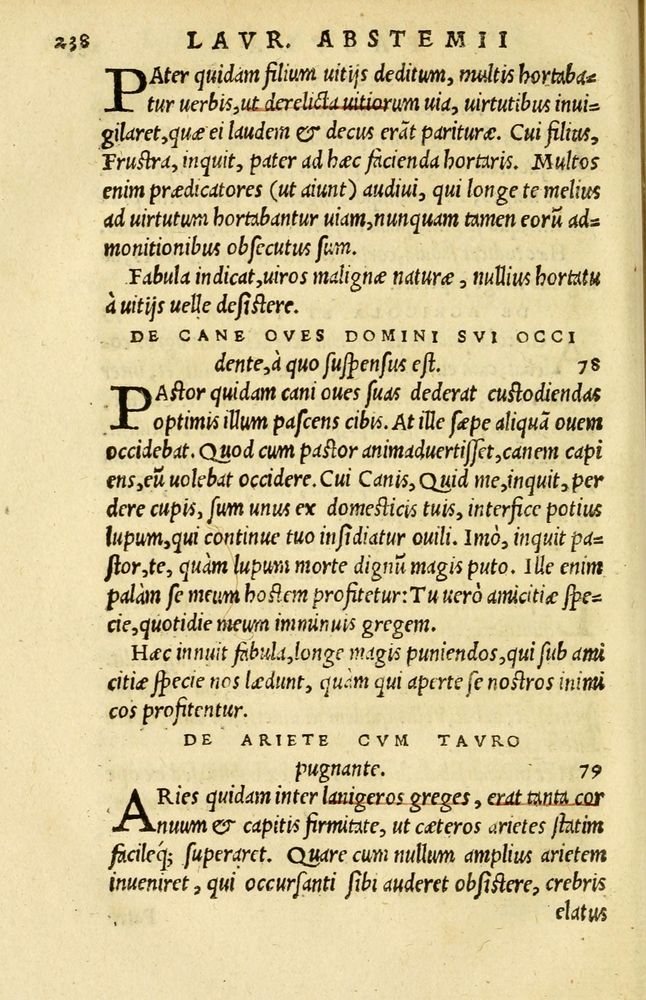 238 LAVR. ABSTEMII
PAter quidam filium uitijs deditum, multis hortaba=
tur uerbis, ut derelicta uitiorum uia, uirtutibus inui=
gilaret, quæ ei laudem & decus erāt parituræ. Cui filius,
Frustra, inquit, pater ad hæc facienda hortaris. Multos
enim prædicatores (ut aiunt) audiui, qui longe te melius
ad uirtutum hortabantur uiam, nunquam tamen eorū ad=
monitionibus obsecutus sum.
Fabula indicat, uiros malignæ naturæ, nullius hortatu
à uitijs uelle desistere.
DE CANE OVES DOMINI SVI OCCI
dente, à quo suspensus est. 78
PAstor quidam cani oues suas dederat custodiendas
optimis illum pascens cibis. At ille sæpe aliquā ouem
occidebat. Quod cum pastor animaduertisset, canem capi
ens, eū uolebat occidere. Cui Canis, Quid me, inquit, per
dere cupis, sum unus ex domesticis tuis, interfice potius
lupum, qui continue tuo insidiatur ouili. Imò, inquit pa=
stor, te, quàm lupum morte dignū magis puto. Ille enim
palàm se meum hostem profitetur: Tu uerò amicitiæ spe=
cie, quotidie meum imminuis gregem.
Hæc innuit fabula, longe magis puniendos, qui sub ami
citiæ specie nos lædunt, quàm qui aperte se nostros inimi
cos profitentur.
DE ARIETE CVM TAVRO
pugnante. 79
ARies quidam inter lanigeros greges, erat tanta cor
nuum & capitis firmitate, ut cæteros arietes statim
facileq́; superaret. Quare cum nullum amplius arietem
inueniret, qui occursanti sibi auderet obsistere, crebris
elatus